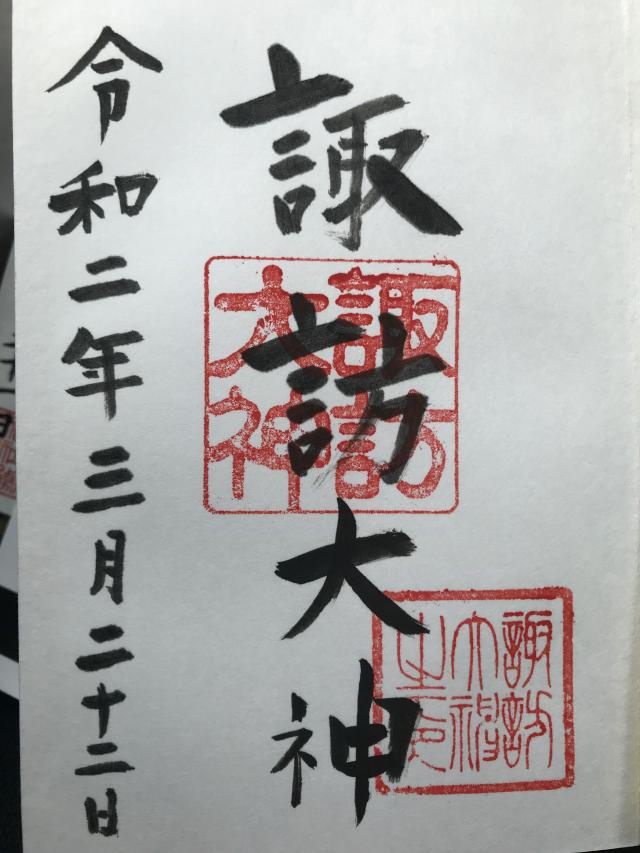 諏訪大神
諏訪
大神
諏訪
大神
之印
令和二年三月二十二日